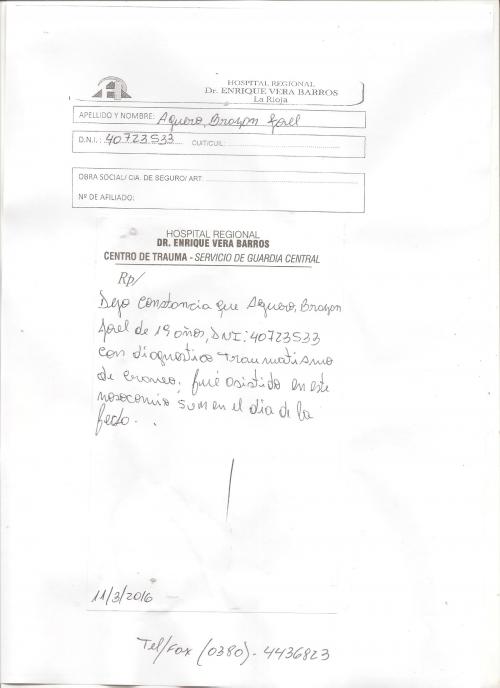 HOSPITAL REGIONAL
Dr. ENRIQUE VERA BARROS
La Rioja
APELLIDO Y NOMBRE: Aguero, Brayon Joel
D.N.I.: 40723533 CUIT/CUIL:
OBRA SOCIAL/ CIA. DE SEGURO/ ART
Nº DE AFILIADO:
HOSPITAL REGIONAL
DR. ENRIQUE VERA BARROS
CENTRO DE TRAUMA - SERVICIO DE GUARDIA CENTRAL
Rp/
Dejo constancia que Aguero, Brayon
Joel de 19 años, DNI: 40723533
con diagnostico Traumatismo
de craneo, fué asistido en este
nosocomio, en el dia de la
fecha.
11/3/2016
Tel/Fax (0380) - 4436823